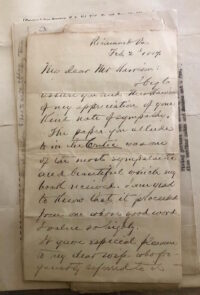 Richmond Va.
Feb 2
My dear Mr Harrison:
I beg to
assure you and Mrs Harrison
of my appreciation of your
kind note of sympathy.
The paper you alluded
to in the was one
of the most sympathetic
and beautiful which my
book received. I am glad
to know that it proceeded
from one whose good word
I value so highly.
It gave especial pleasure
to my dear wife who for